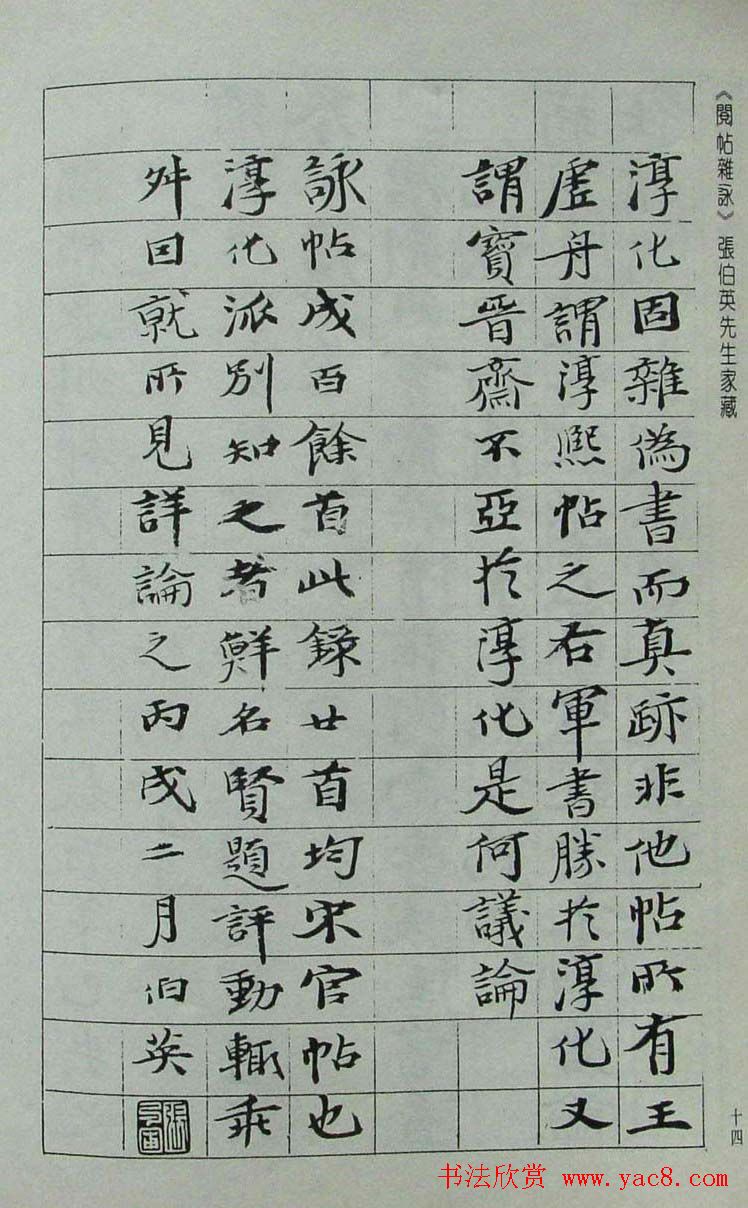 《閱帖雜詠》張伯英先生家藏
淳化固雜偽書而真跡非他帖所有王
虛舟謂淳熙帖之右軍書勝於淳化又
謂寶晉齋不亞於淳化是何議論
詠帖成百餘首此錄廿首均宋官帖也
淳化派別知之者鮮名賢題評動輒乖
舛因就所見詳論之丙戌二月伯英
十四
书法欣赏 www.yac8.com